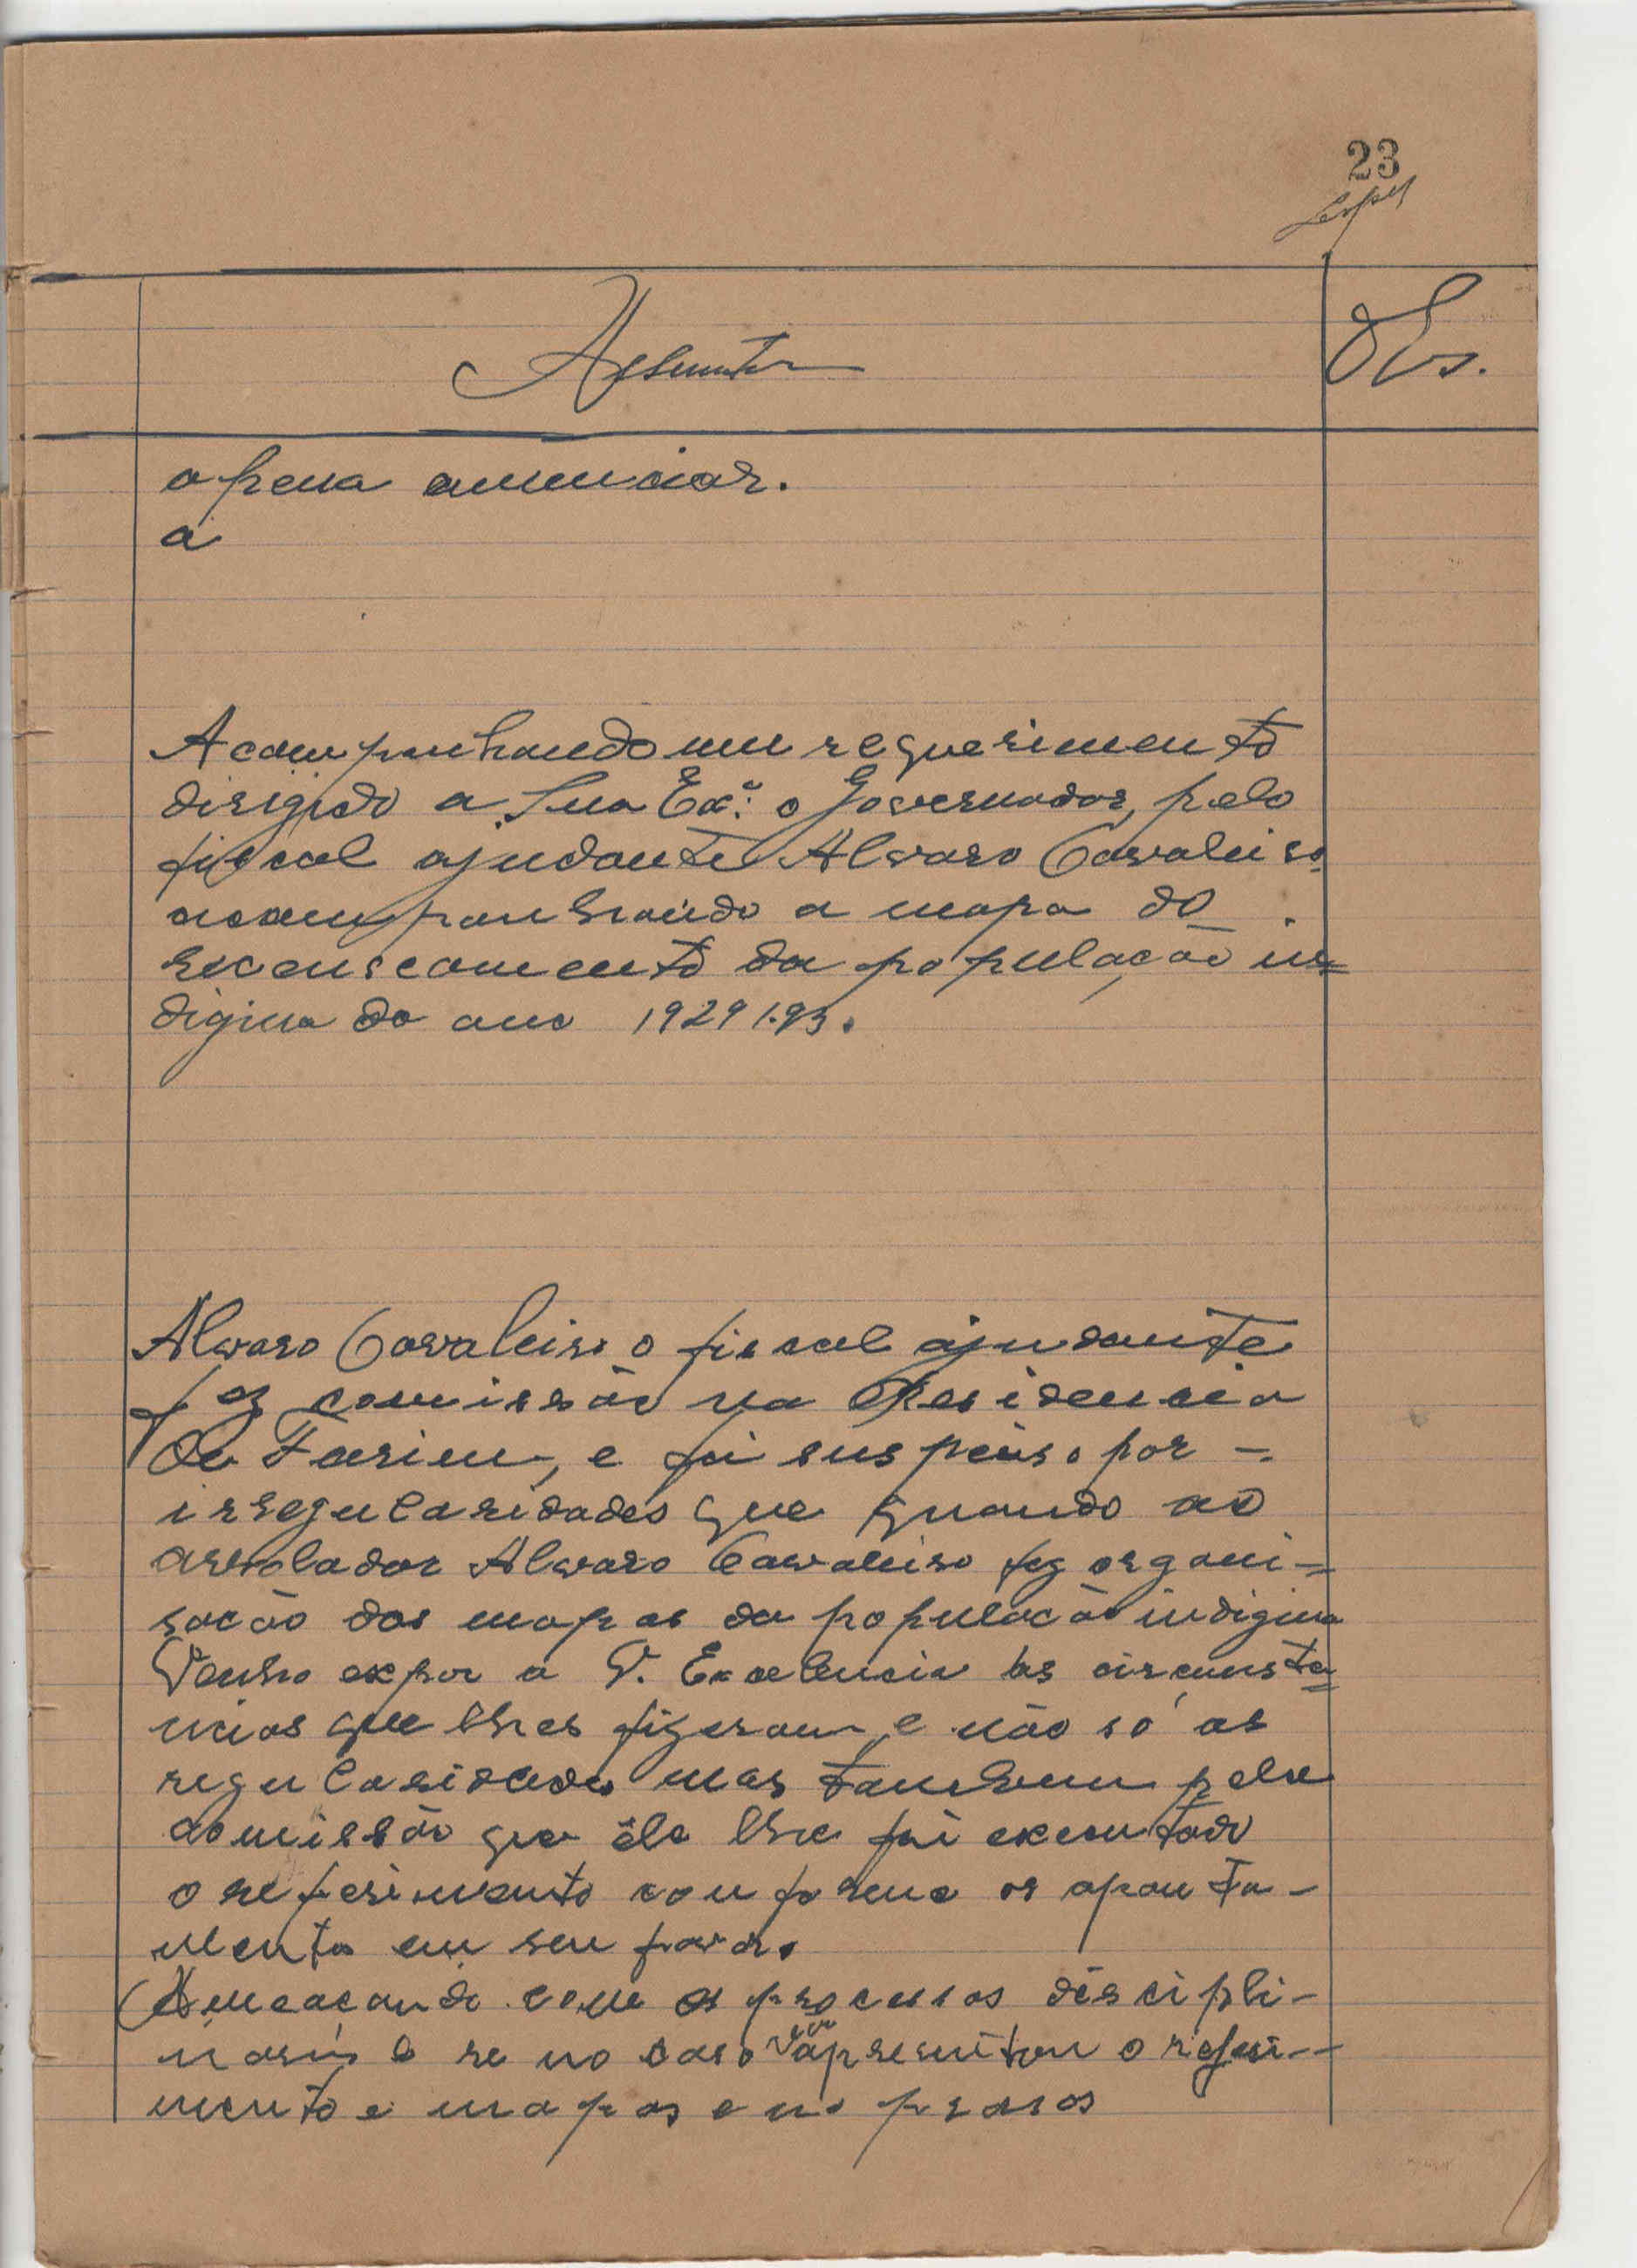 23
Assunto
Obs.
a pena anunciar.
a
Acompanhando um requerimento
dirigido a Sua Exª. o Governador, pelo
fiscal ajudante Alvaro Cavaleiro
acompanhando a mapa do
recenseamento da população in=
digina do ano 1929
Alvaro Cavaleiro o fiscal ajudante
fez comissão na Residencia
de Farim, e foi suspenso por -
irregularidades que quando ao
arrolador Alvaro Cavaleiro fez organi=
sacão dos mapas da população indigina
Venho expor a V. Excelencia as circunsta=
ncias que lhes fizeram, e não só as
regularidades mas tambem pela
domissão que êle lhe foi executado
o referimento conforme os aponta-
mentos em seu favor.
Ameaçando com os processos discipli-
naris e se no caso apresentou o requi-
mento e mapas e no prasos